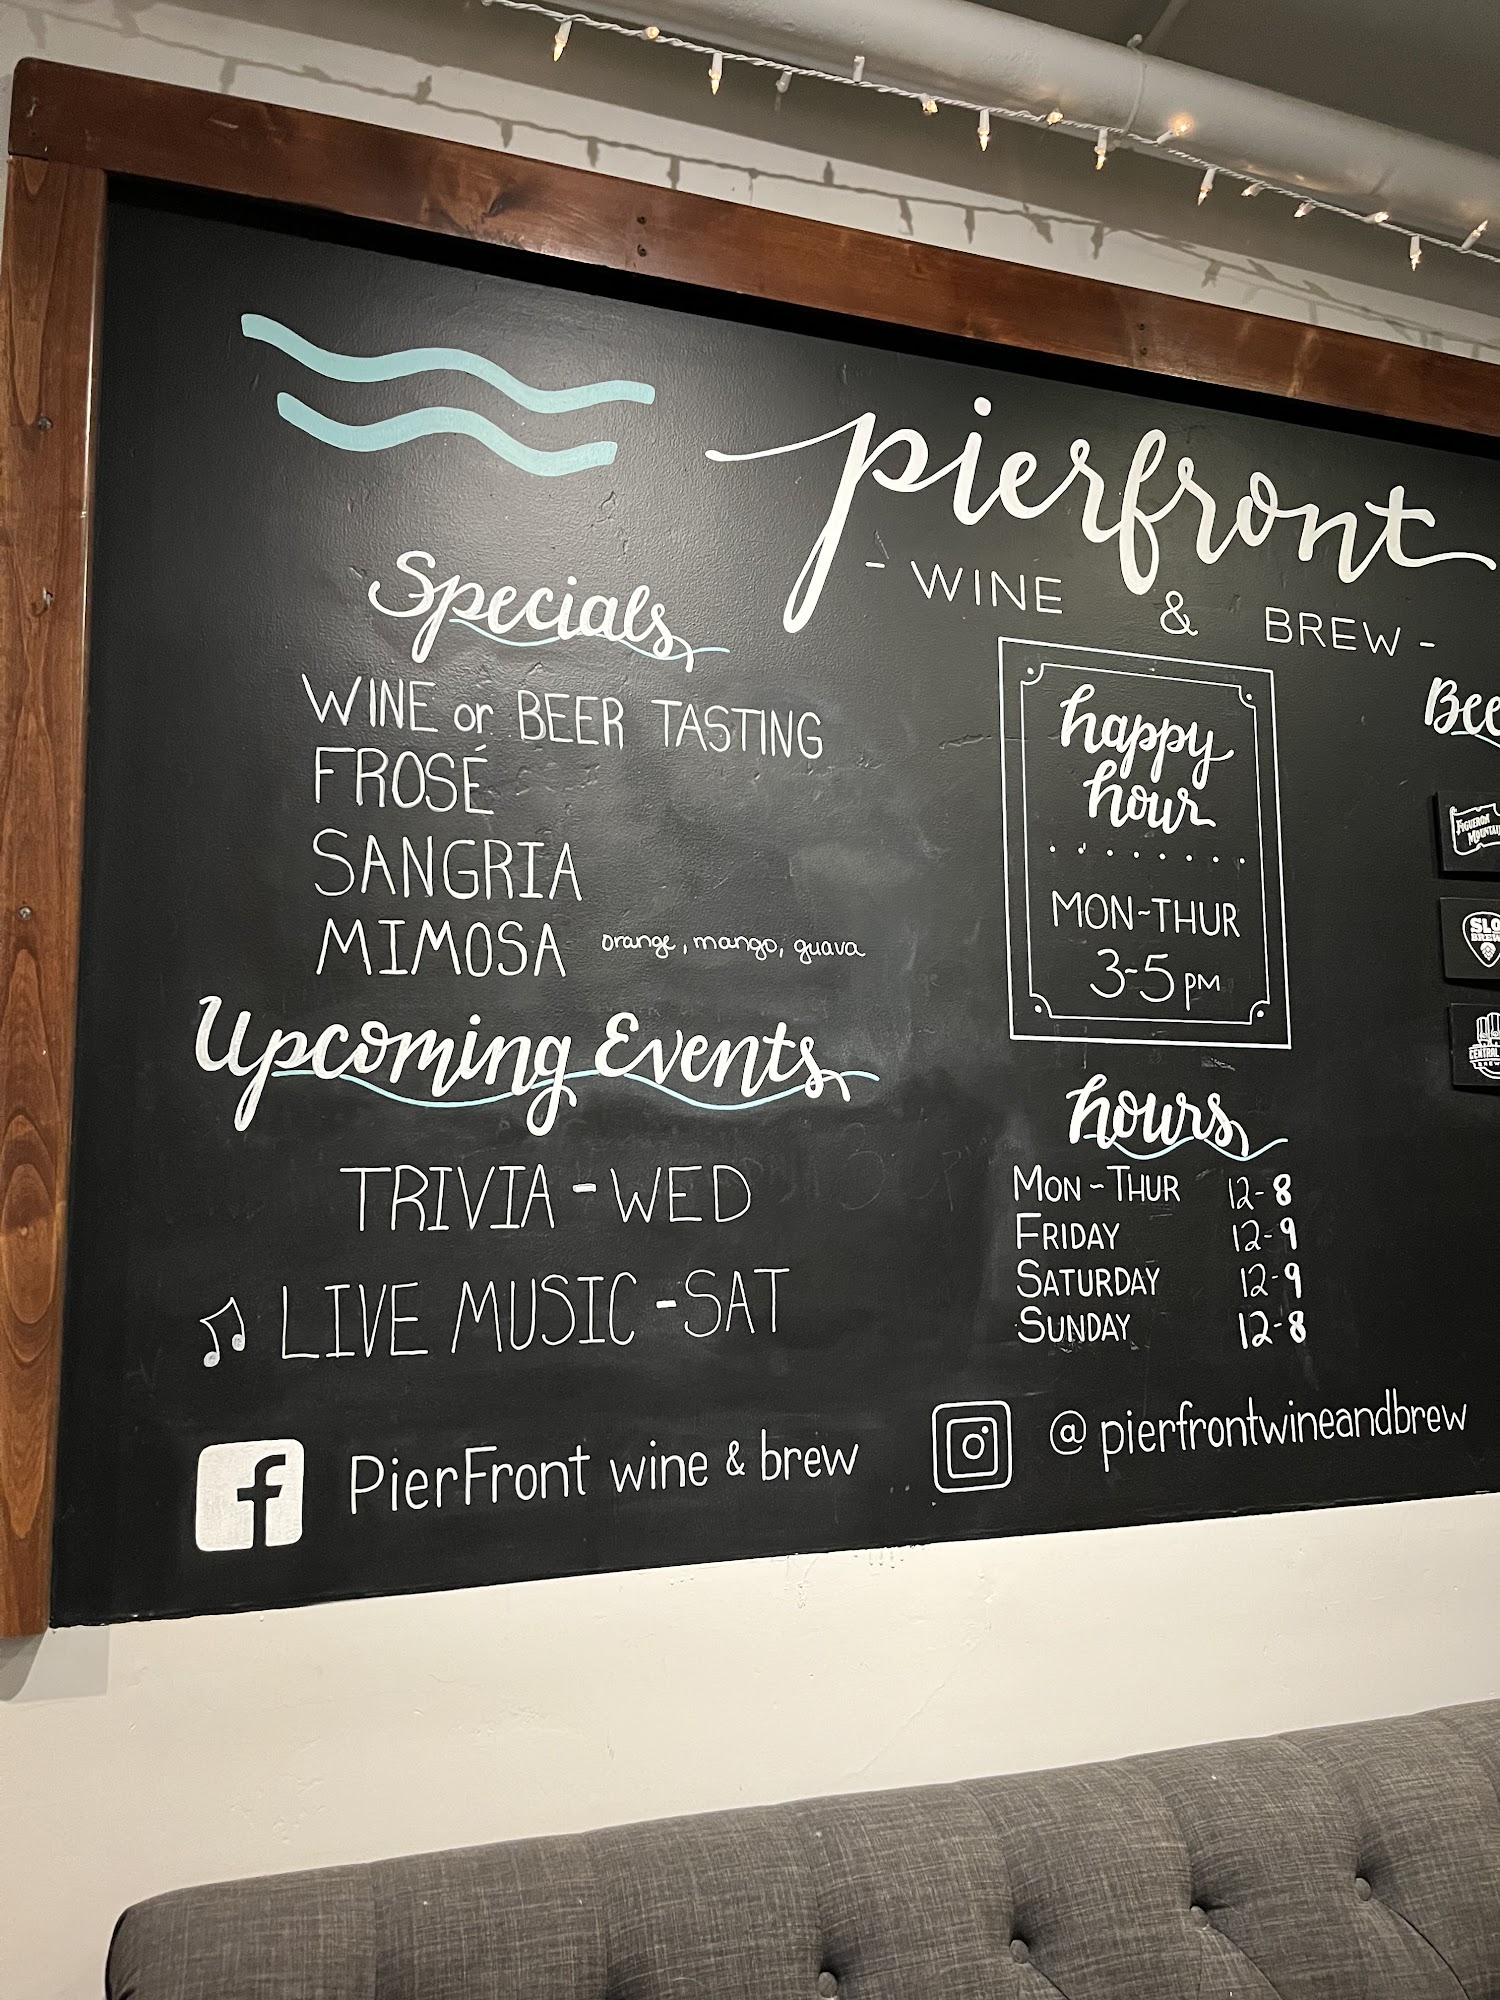 pierfront
- WINE & BREW -
Specials
WINE or BEER TASTING
FROSÉ
SANGRIA
MIMOSA orange, mango, guava
Upcoming Events
TRIVIA - WED
LIVE MUSIC - SAT
happy
hour
MON-THUR
3-5 PM
hours
MON - THUR 12-8
FRIDAY 12-9
SATURDAY 12-9
SUNDAY 12-8
PierFront wine & brew
@pierfrontwineandbrew
FIGUEROA
SLO
CENTRAL